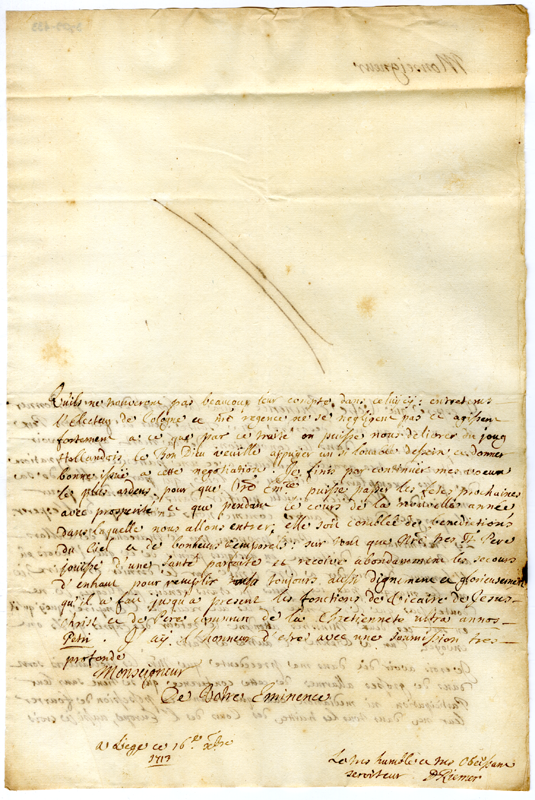 Monseigneur
Qu'ils ne trouveront pas beaucoup leur compte dans celui cy: entretems
l'Electeur de Cologne et regence ne se negligent pas d'agir
fortement a ce que par ce traité on puisse nous delivrer du joug
Hollandois, le bon dieu veuille appuyer un si louable dessein et donner
bonne issue a cette negotiation. Je finis par continuer mes voeux
les plus ardens, pour que puisse passer les fetes prochaines
avec prosperité et que pendant le cours de la nouvelle année,
dans laquelle nous allons entrer, elle soit comblée des benedictions
du Ciel et de bonheurs temporels: sur tout que Pere
jouisse d'une santé parfaite et recoive abondamment les secours
d'enhaut pour remplir toujours aussi dignement et glorieusement
qu'il le fait jusqu'a present les fonctions de Vicaire de Jesus-
Christ et de Pere commun de la Chretienneté ultra annos
Petri. J'ay l'honneur d'etre avec une soumission tres
profonde
Monseigneur
De Votre Eminence
a Liege ce 16 xbre
1713
Le tres humble et tres obeissant
serviteur